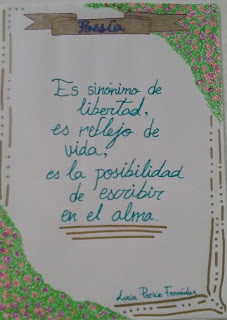 Poesía
Es sinónimo de
libertad,
es reflejo de
vida,
es la posibilidad
de escribir
en el alma.
Lucía Patricio Fernández